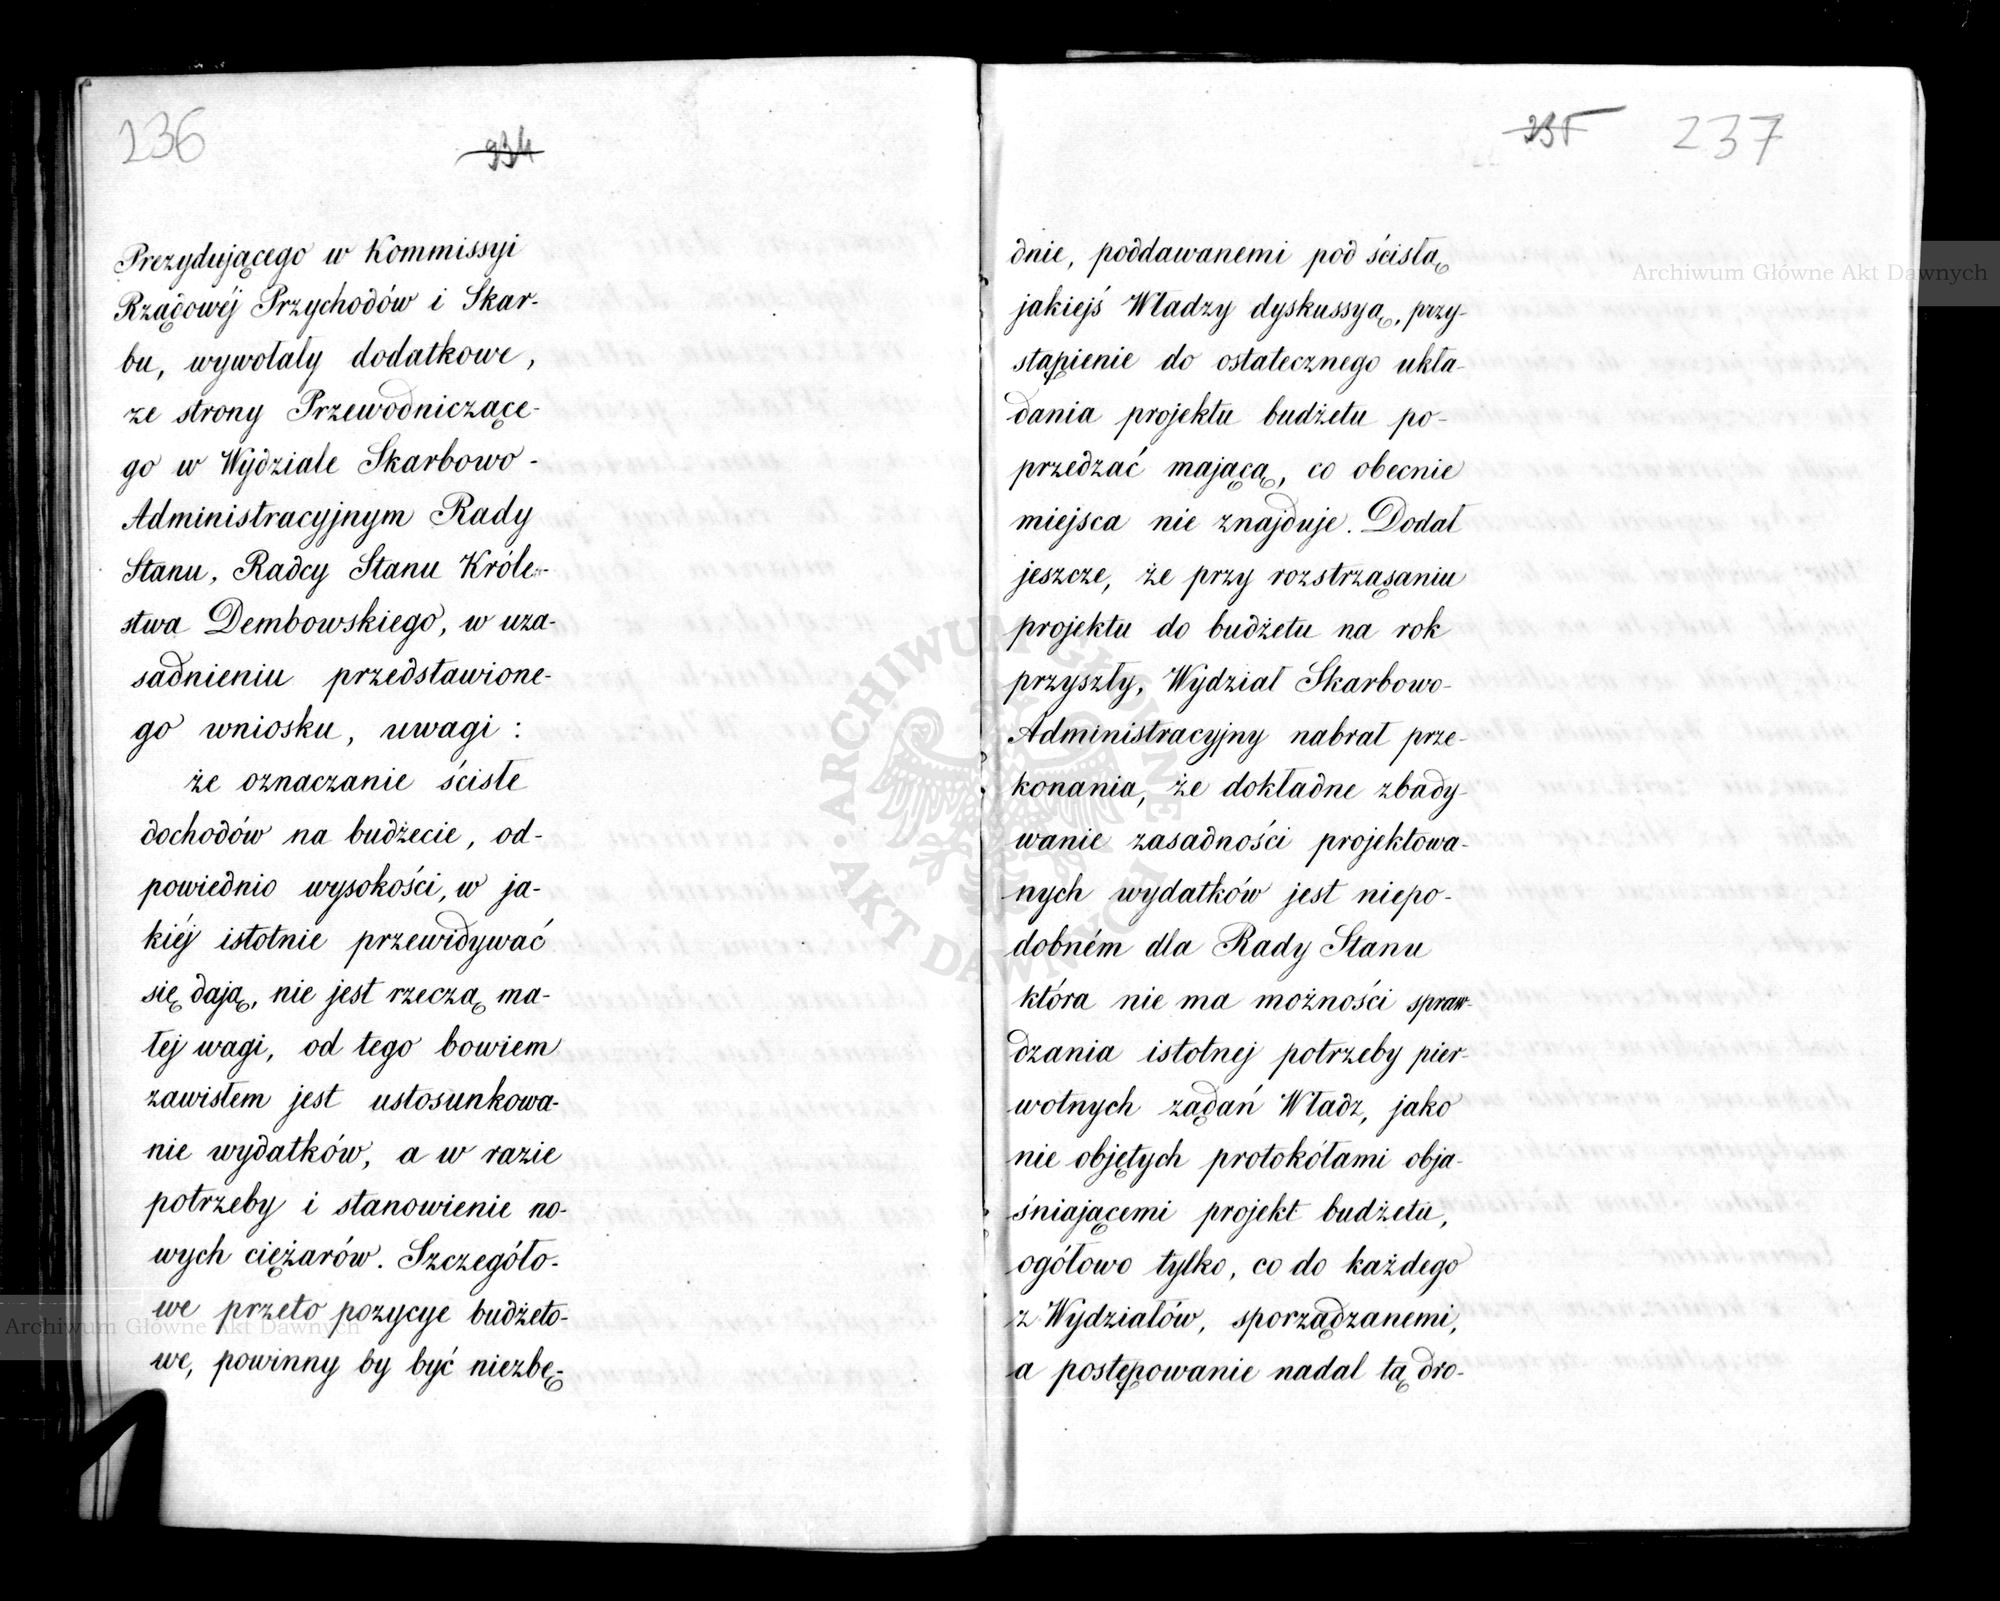 236
234
Prezydującego w Kommissyi
Rządowéj Przychodów i Skar-
bu, wywołały dodatkowe,
ze strony Przewodniczące-
go w Wydziale Skarbowo-
Administracyjnym Rady
Stanu, Radcy Stanu Króle-
stwa Dembowskiego, w uza-
sadnieniu przedstawione-
go wniosku, uwagi:
że oznaczanie ścisłe
dochodów na budżecie, od-
powiednio wysokości, w ja-
kiéj istotnie przewidywać
się dają, nie jest rzeczą ma-
łej wagi, od tego bowiem
zawisłem jest ustosunkowa-
nie wydatków, a w razie
potrzeby i stanowienie no-
wych ciężarów. Szczegóło-
we przeto pozycye budżeto-
we, powinny by być niezbę-
235
237
dnie, poddawanemi pod ścisłą
jakiejś Władzy dyskussyą, przy-
stąpienie do ostatecznego ukła-
dania projektu budżetu po-
przedzać mającą, co obecnie
miejsca nie znajduje. Dodał
jeszcze, że przy rozstrząsaniu
projektu do budżetu na rok
przyszły, Wydział Skarbowo-
Administracyjny nabrał prze-
konania, że dokładne zbady-
wanie zasadności projektowa-
nych wydatków jest niepo-
dobném dla Rady Stanu
która nie ma możności spraw-
dzania istotnej potrzeby pier-
wotnych żądań Władz, jako
nie objętych protokółami obja-
śniającemi projekt budżetu,
ogółowo tylko, co do każdego
z Wydziałów, sporządzanemi,
a postępowanie nadal tą dro-
Archiwum Główne Akt Dawnych
Archiwum Główne Akt Dawnych
ARCHIWUM GŁÓWNE AKT DAWNYCH